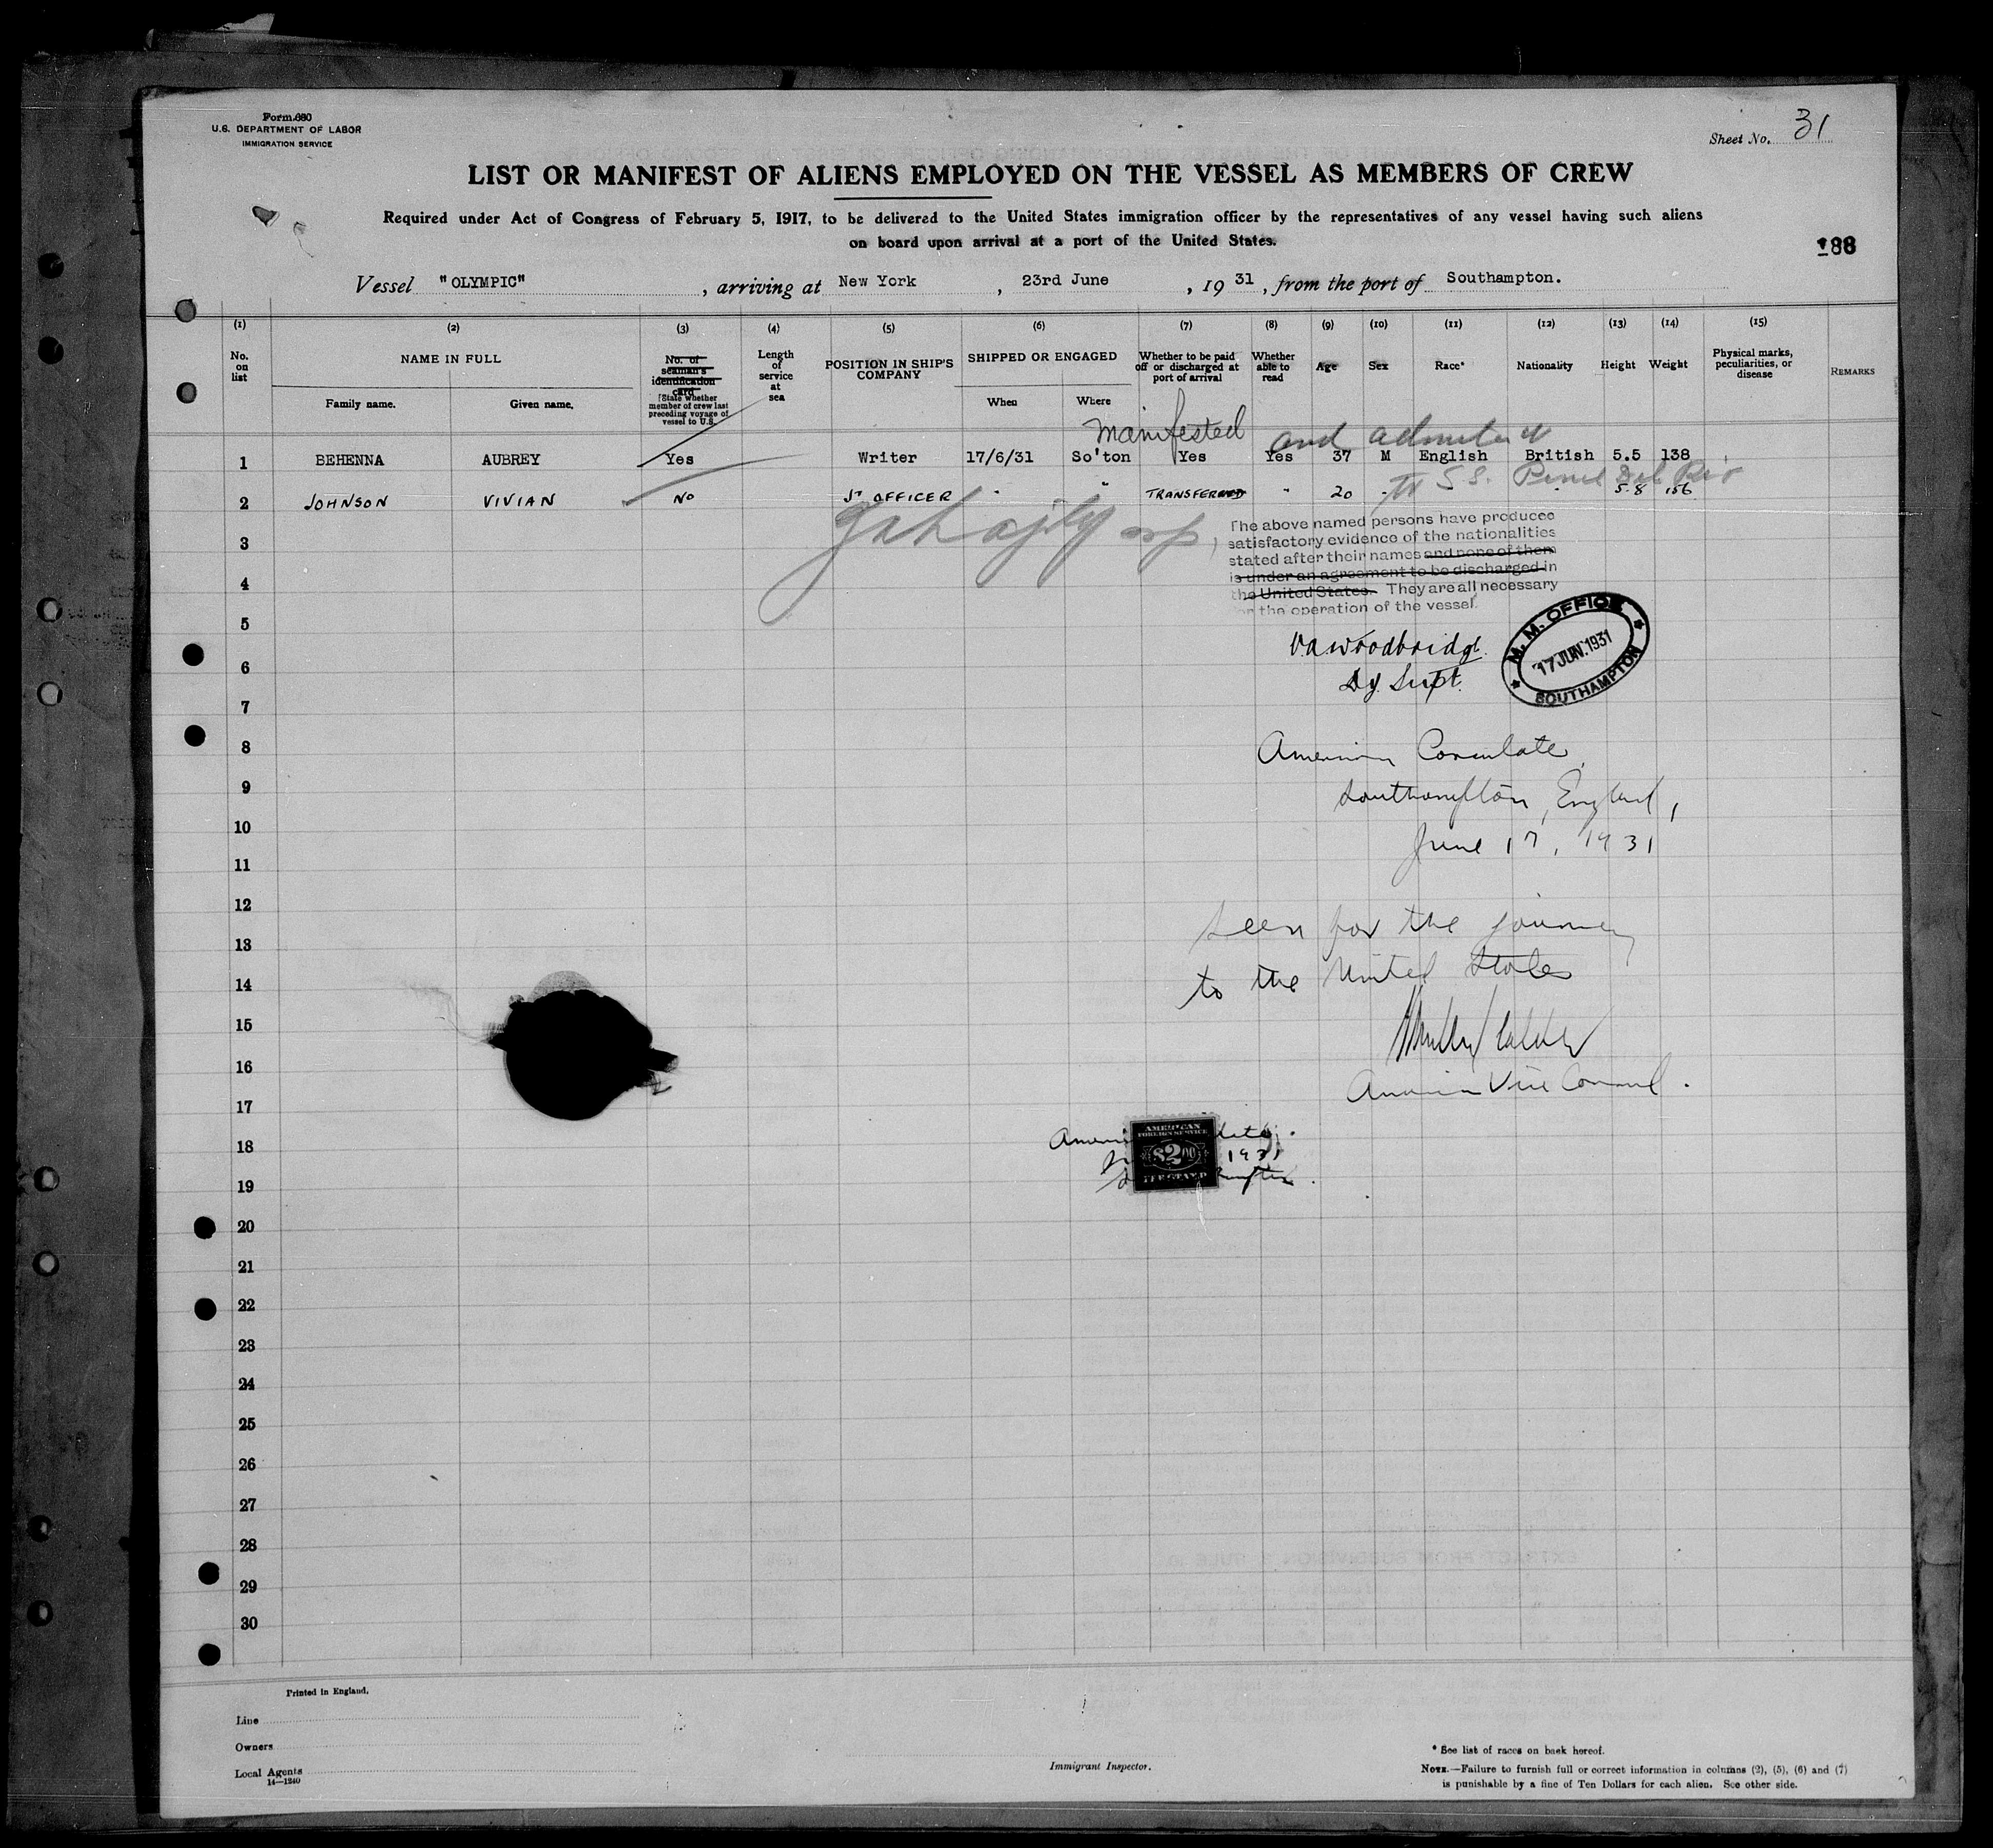 Form 680
U.S. DEPARTMENT OF LABOR
IMMIGRATION SERVICE
Sheet No. 31
LIST OR MANIFEST OF ALIENS EMPLOYED ON THE VESSEL AS MEMBERS OF CREW
Required under Act of Congress of February 5, 1917, to be delivered to the United States immigration officer by the representatives of any vessel having such aliens
on board upon arrival at a port of the United States.
188
Vessel "OLYMPIC", arriving at New York, 23rd June, 1931, from the port of Southampton.
(1) (2) (3) (4) (5) (6) (7) (8) (9) (10) (11) (12) (13) (14) (15)
No. on list
NAME IN FULL
Family name. Given name.
No. of seaman's identification card
[State whether member of crew last preceding voyage of vessel to U.S.
Length of service at sea
POSITION IN SHIP'S COMPANY
SHIPPED OR ENGAGED
When Where
Whether to be paid off or discharged at port of arrival
Whether able to read
Age
Sex
Race*
Nationality
Height
Weight
Physical marks, peculiarities, or disease
REMARKS
manifested and admitted
1 BEHENNA AUBREY Yes Writer 17/6/31 So'ton Yes Yes 37 M English British 5.5 138
to S.S. Del Rio
2 JOHNSON VIVIAN No Jr OFFICER " " TRANSFERRED " 20 " 5-8 156
The above named persons have produced
satisfactory evidence of the nationalities
stated after their names and none of them
is under an agreement to be discharged in
the United States. They are all necessary
for the operation of the vessel.
3
4
5
V.A Woodbridge
Dy Supt.
M. M. OFFICE
17 JUN. 1931
SOUTHAMPTON
6
7
8
American Consulate,
9
Southampton, England,
10
June 17, 1931
11
12
Seen for the journey
13
to the United States
14
15
16
American Vice Consul.
17
18
AMERICAN
FOREIGN SERVICE
$2.00
1931
19
20
21
22
23
24
25
26
27
28
29
30
Printed in England.
Line
Owners
Local Agents
14—1240
Immigrant Inspector.
* See list of races on back hereof.
NOTE.—Failure to furnish full or correct information in columns (2), (5), (6) and (7)
is punishable by a fine of Ten Dollars for each alien. See other side.